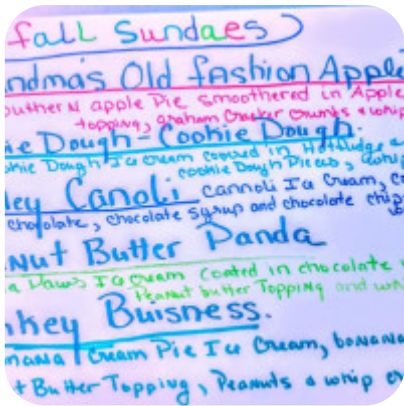 fall Sundaes
ndma's Old fashion Apple
outhern apple Pie smoothered in Apple
topping, graham Cracker crumbs & whip
ie Dough - Cookie Dough.
okie Dough Ice Cream covered in Hotfudge a
cookie Dough Pieces, whip
ley Canoli cannoli Ice Cream, C
chocolate, chocolate syrup and chocolate chip
Nut Butter Panda
a Paws Ice Cream coated in chocolate
Peanut butter Topping and whi
nkey Buisness.
nana Cream Pie Ice Cream, banana
t Butter Topping, Peanuts & whip cr